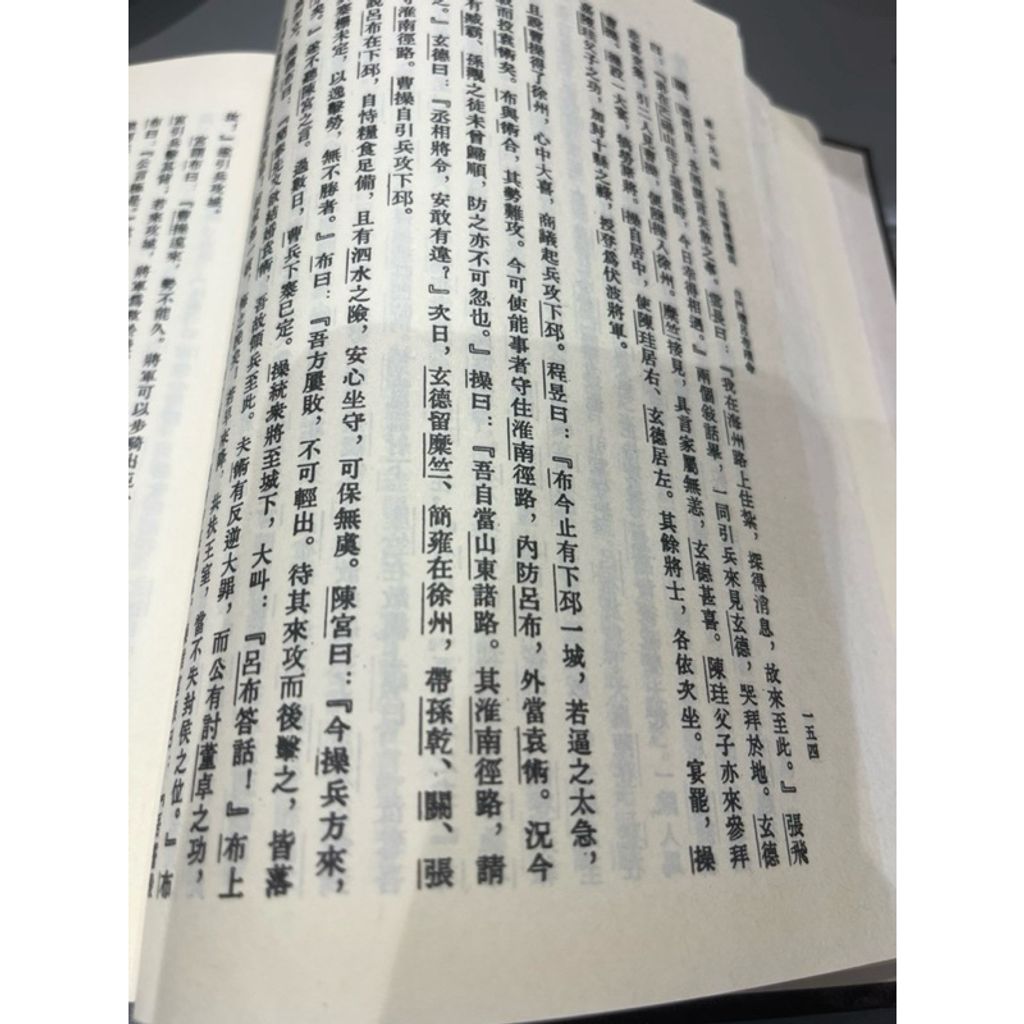 第十九回 下邳城曹操鏖兵 白門樓呂布殞命 一五四
雲長曰：『我在海州路上住紮，探得消息，故來至此。』張飛
曰：『弟在芒碭山住了這幾時，今日幸得相遇。』兩個敍話畢，一同引兵來見玄德，哭拜於地。玄德
悲喜交集，引二人見曹操，便隨操入徐州。糜竺接見，具言家屬無恙，玄德甚喜。陳珪父子亦來參拜
曹操。操設一大宴，犒勞諸將。操自居中，使陳珪居右、玄德居左。其餘將士，各依次坐。宴罷，操
嘉陳珪父子之功，加封十縣之祿，授登爲伏波將軍。
且說曹操得了徐州，心中大喜，商議起兵攻下邳。程昱曰：『布今止有下邳一城，若逼之太急，
戰而投袁術矣。布與術合，其勢難攻。今可使能事者守住淮南徑路，內防呂布，外當袁術。況今
有臧霸、孫觀之徒未曾歸順，防之亦不可忽也。』操曰：『吾自當山東諸路。其淮南徑路，請
之。』玄德曰：『丞相將令，安敢有違？』次日，玄德留糜竺、簡雍在徐州，帶孫乾、關、張
淮南徑路。曹操自引兵攻下邳。
說呂布在下邳，自恃糧食足備，且有泗水之險，安心坐守，可保無虞。陳宮曰：『今操兵方來，
寨柵未定，以逸擊勞，無不勝者。』布曰：『吾方屢敗，不可輕出。待其來攻而後擊之，皆落
矣。』遂不聽陳宮之言。過數日，曹兵下寨已定。操統衆將至城下，大叫：『呂布答話！』布上
結婚袁術，吾故領兵至此。夫術有反逆大罪，而公有討董卓之功，
共扶王室，當不失封侯之位。』布
遂引兵攻城。
宮謂布曰：『曹操遠來，勢不能久。將軍可以步騎出
宮引兵擊其背；若來攻城，將軍爲救於
布曰：『公言極是。』